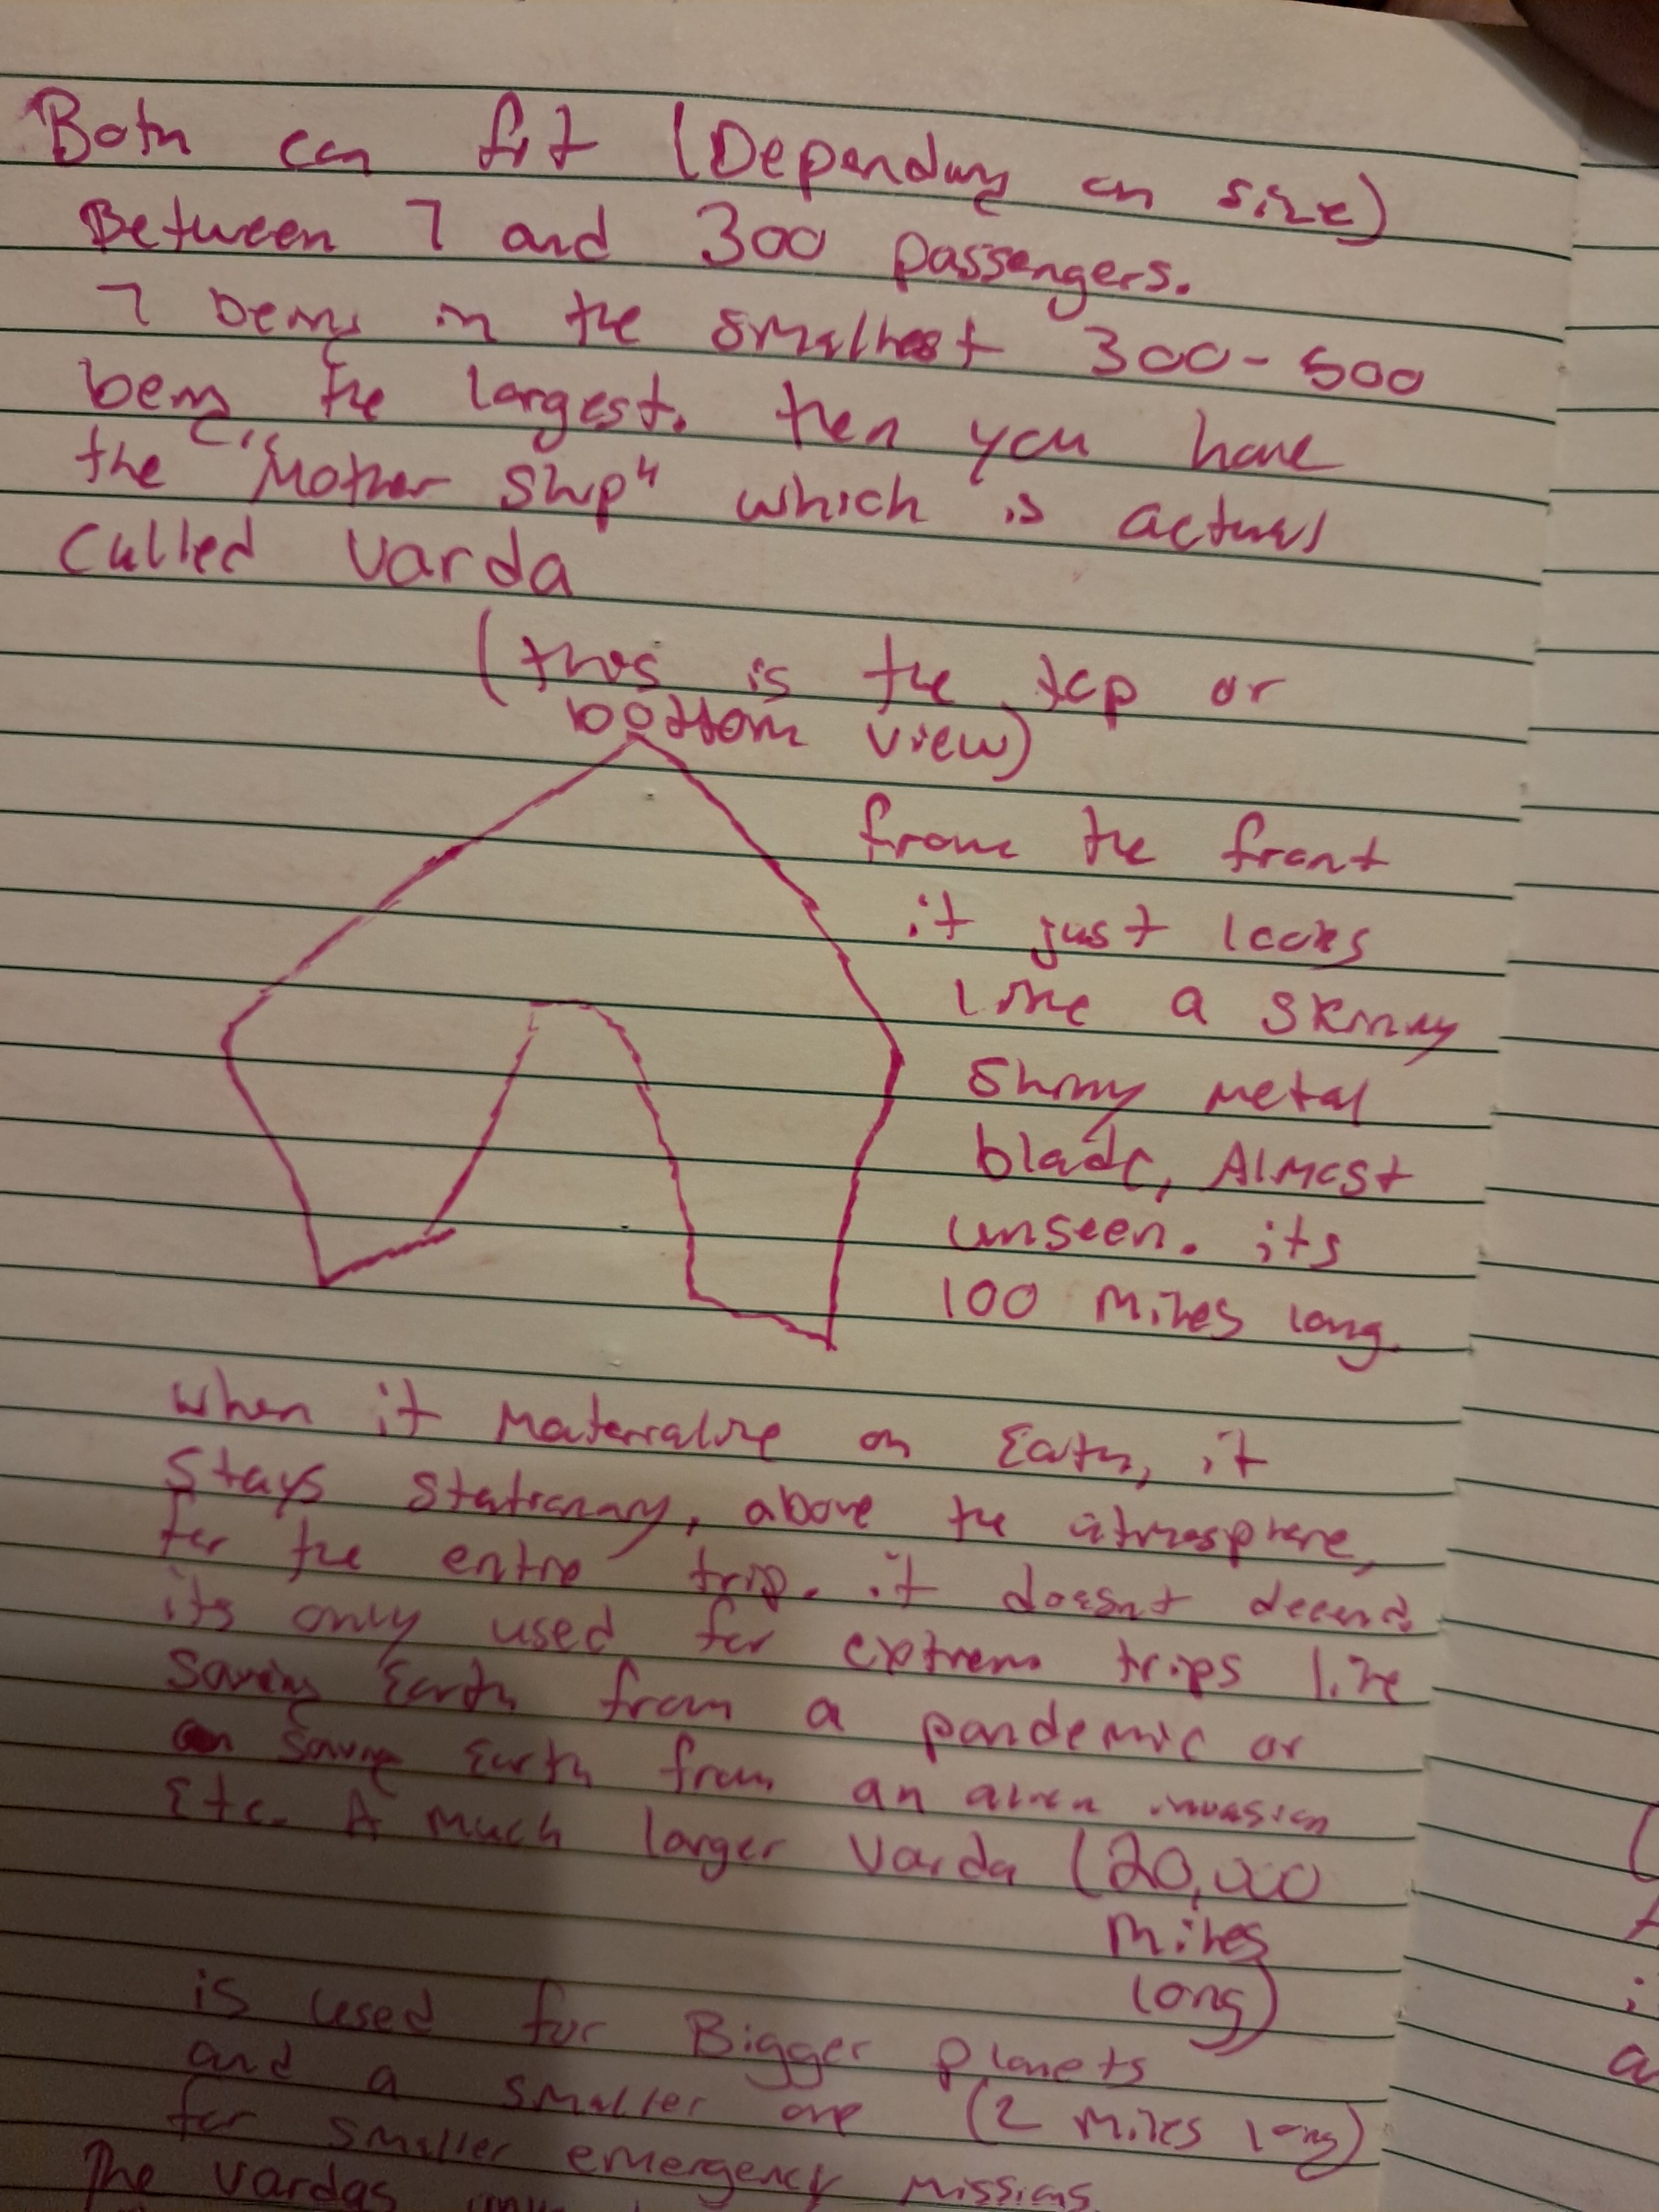 Both can fit (Depending on size)
Between 7 and 300 passengers.
7 being in the smallhest 300-500
being the largest. then you have
the "Mother Ship" which is actual
called Varda
(this is the top or
bottom view)
from the front
it just looks
like a skinny
shiny metal
blade, Almost
unseen. its
100 Miles long.
when it Materialize on Earth, it
stays stationary, above the atmosphere,
for the entire trip. it doesnt decend
its only used for extreme trips like
saving Earth from a pandemic or
saving Earth from an alien invasion
Etc. A much larger Varda (20,000
miles
long)
is used for Bigger planets
and a smaller one (2 miles long)
for smaller emergency missions.
The vardas